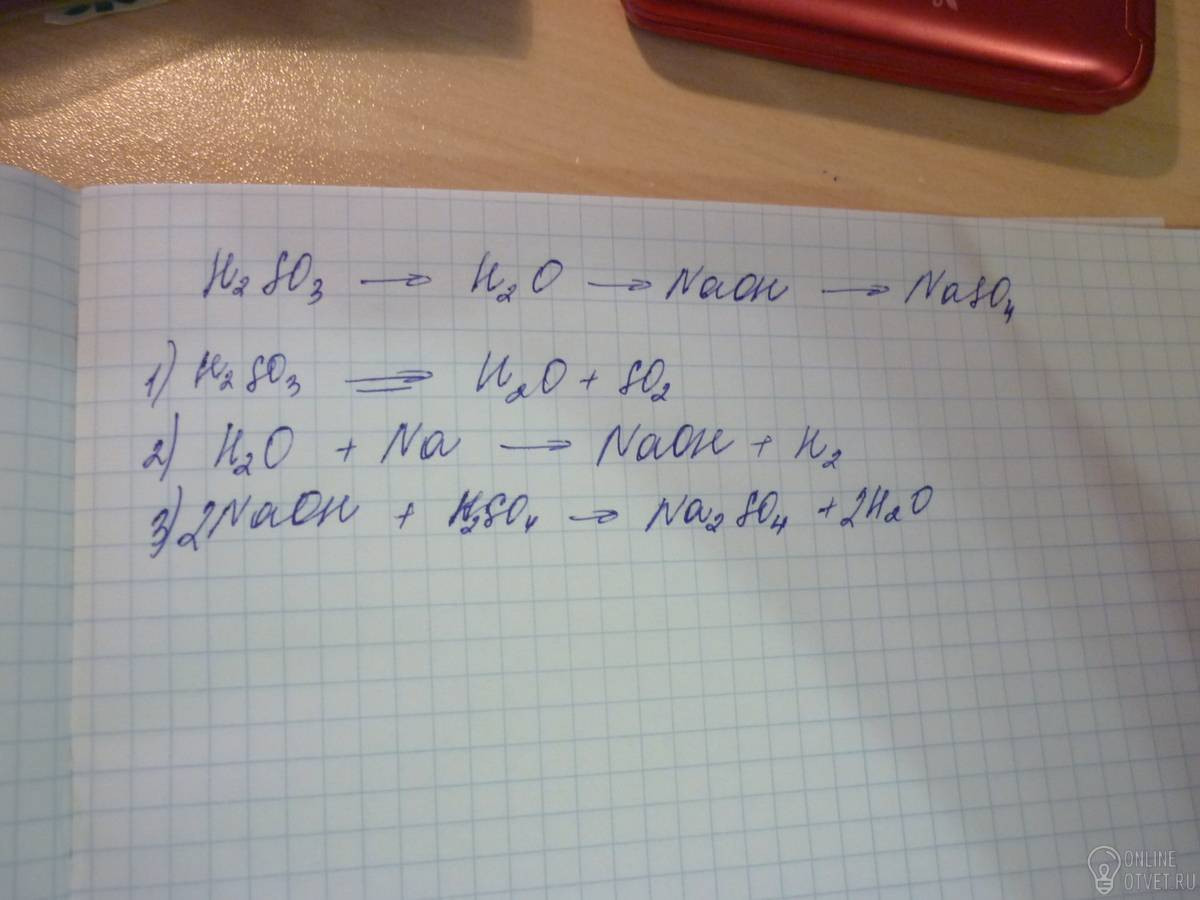 H₂SO₃ → H₂O → NaOH → NaSO₄
1) H₂SO₃ ⇌ H₂O + SO₂
2) H₂O + Na → NaOH + H₂
3) 2NaOH + H₂SO₄ → Na₂SO₄ + 2H₂O
ONLINE
OTVET.RU